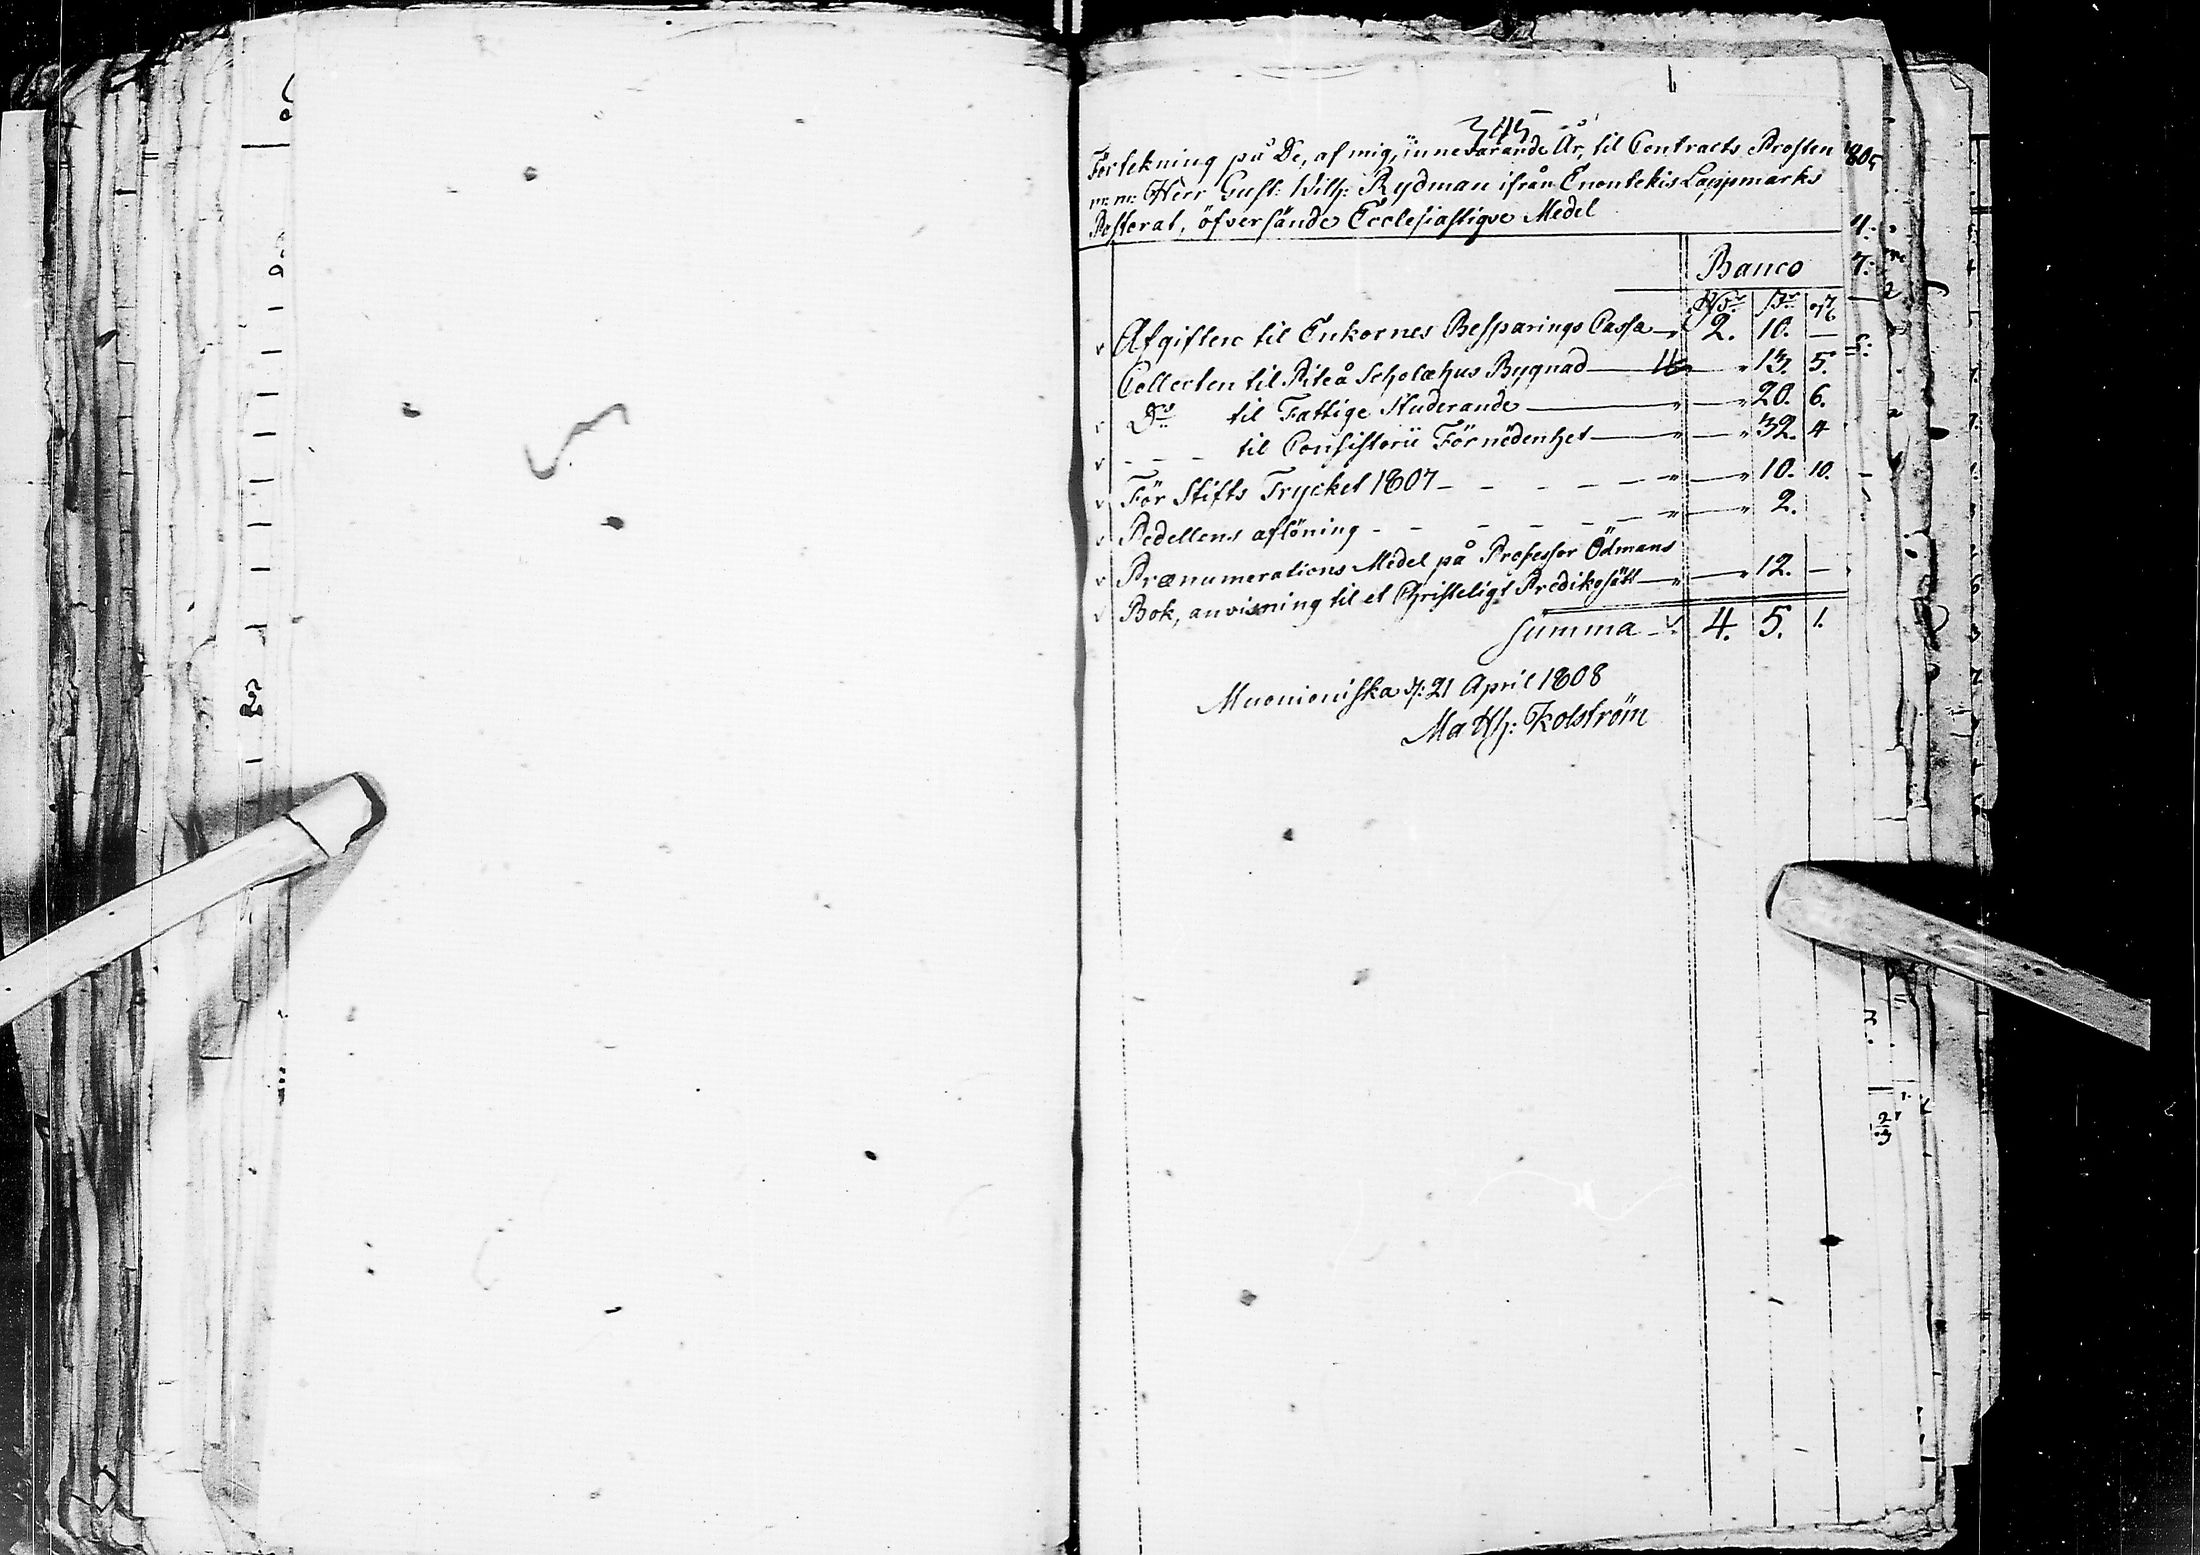 345
Förtekning på De, af mig, innevarande År, til Contracts Prosten
m: m: Herr Gust: Wilh: Rydman ifrån Enontekis Lappmarks
Pastorat, öfversände Ecclesiastiqve Medel
Banco
Afgiften til Enkornes Besparings Cassa 2. 10. —
Collecten til Piteå Scholæhus Bygnad — 13. 5.
D:o til Fattige Studerande — 20. 6.
- - - til Consistorii Förnödenhet — 32. 4
För Stifts Trycket 1807 - - - - - 10. 10.
Pedellens aflöning - - - - - - 2.
Prænumerations Medel på Professor Ödmans
Bok, anvisning til et Christeligt Predikosätt — 12. —
Summa 4. 5. 1.
Muonioniska d: 21 April 1808
Matth: Kolström